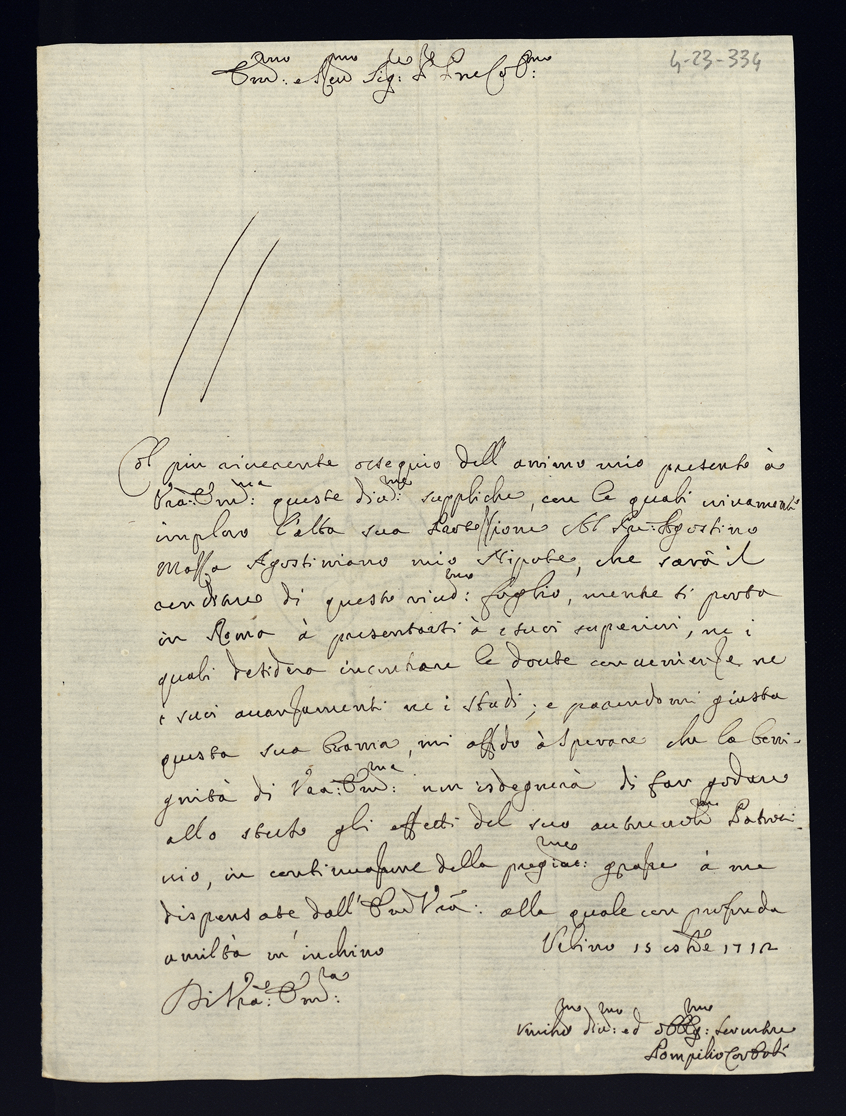 4-23-334
Em.mo e Reu.mo Sig.re P.rone Col.mo
Col piu riuerente ossequio dell'animo mio presento à
Vrã: Em.za: queste diu.me: suppliche, con le quali viuamente
imploro l'alta sua Protessione Al Pre: Agostino
Massa Agostiniano mio Nipote, che sarà il
rendione di questo riu.mo: foglio, mentre si porta
in Roma à presentarsi à i suoi superiori, ne i
quali desidera incontrare le douute conuenienze ne
i suoi auanzamenti ne i studi; e parendomi giusta
questa sua brama, mi affido à sperare che la beni-
gnità di Vrã: Em.za: non isdegnerà di far godere
allo stesso gli effetti del suo autoreuol.mo Patroci-
nio, in continuazione della pregiat.me: grazie à me
dispensate dall'Em. Vrã: alla quale con profonda
umiltà m'inchino
Vrbino 15 8bre 1712
Di Vrã: Em.za:
Vmilis.mo diu.mo: ed obblig.mo: Seruitore
Pompilio Corboli